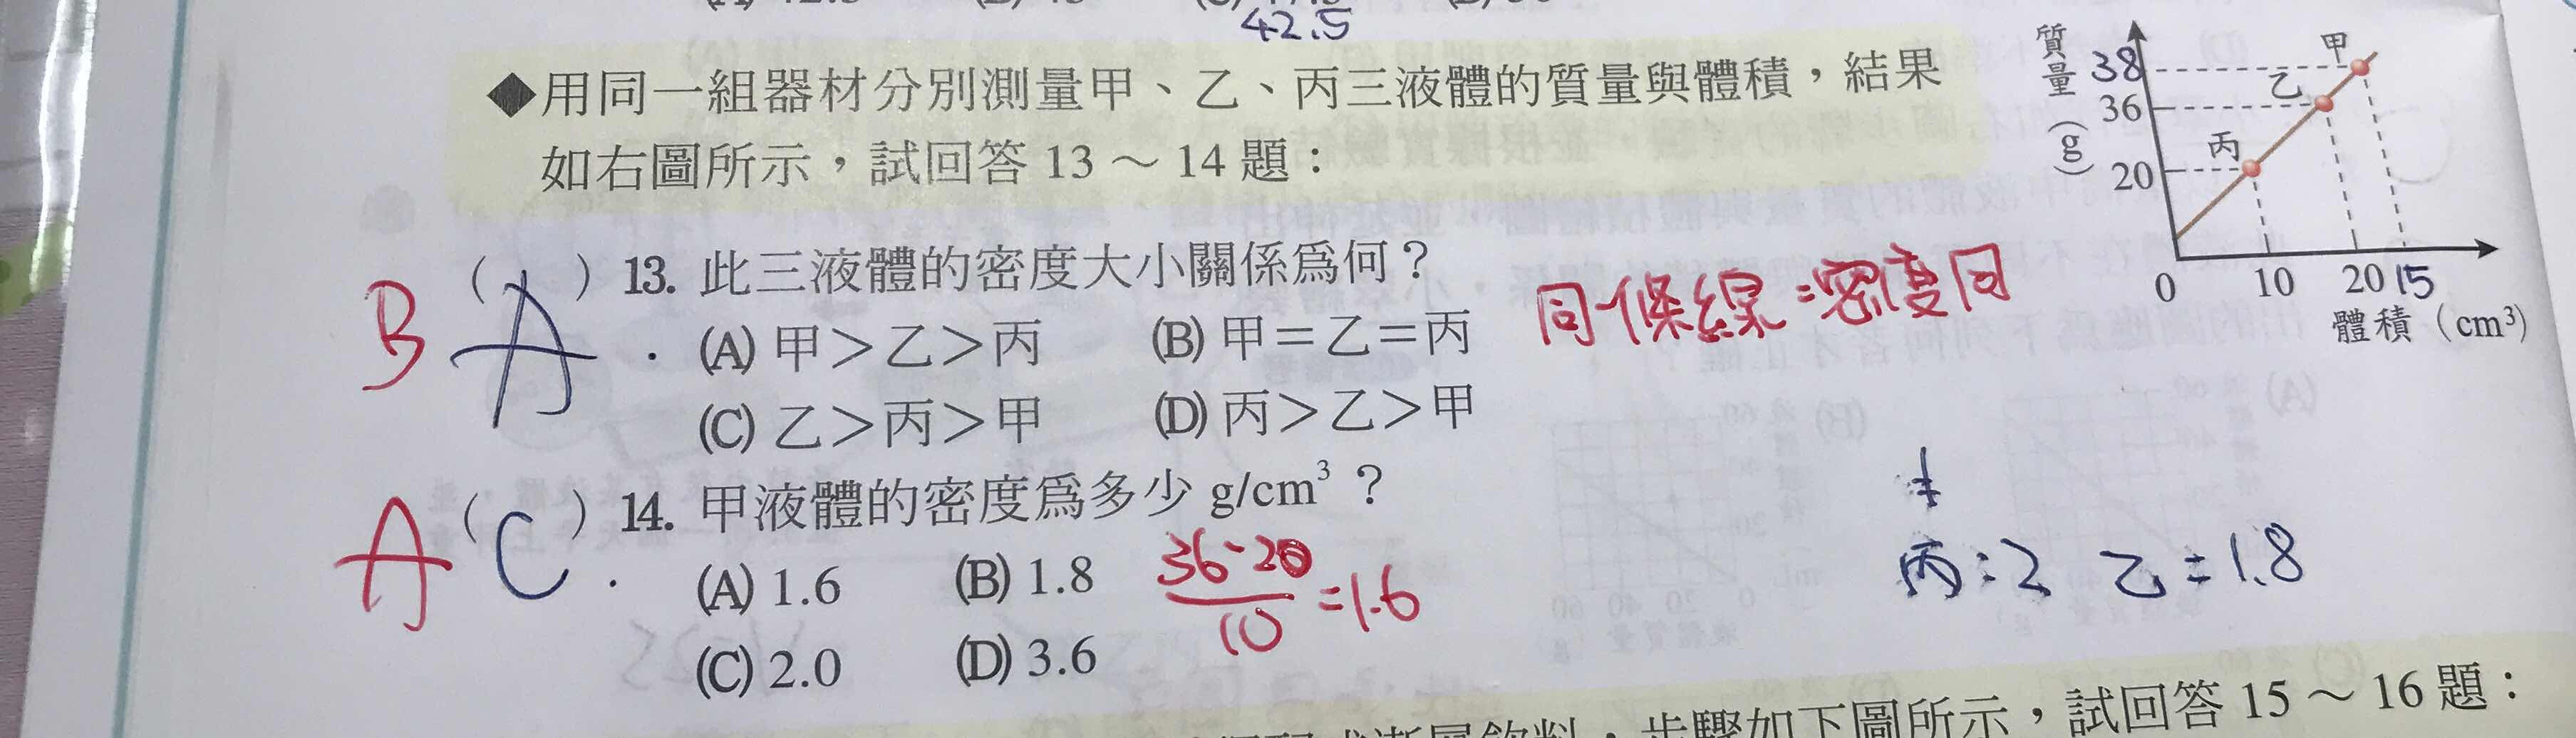 42.5
◆用同一組器材分別測量甲、乙、丙三液體的質量與體積，結果
如右圖所示，試回答 13 ～ 14 題：
質量(g)
38
36
20
甲
乙
丙
0 10 20 15
體積（cm³）
B ( A ) 13. 此三液體的密度大小關係爲何？
(A) 甲＞乙＞丙 (B) 甲＝乙＝丙
同一條線:密度同
(C) 乙＞丙＞甲 (D) 丙＞乙＞甲
A ( C ) 14. 甲液體的密度爲多少 g/cm³ ？
(A) 1.6 (B) 1.8
36-20
10
=1.6
丙:2 乙=1.8
(C) 2.0 (D) 3.6
步驟如下圖所示，試回答 15 ～ 16 題：